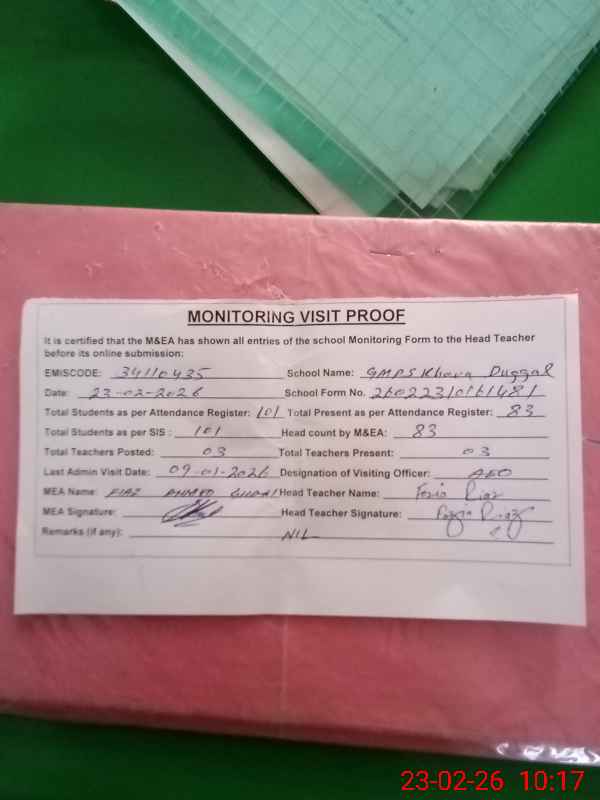 MONITORING VISIT PROOF
It is certified that the M&EA has shown all entries of the school Monitoring Form to the Head Teacher
before its online submission:
EMISCODE: 34110435 School Name: GMPS Khara Duggal
Date: 23-02-2026 School Form No.
Total Students as per Attendance Register: 101 Total Present as per Attendance Register: 83
Total Students as per SIS : 101 Head count by M&EA: 83
Total Teachers Posted: 03 Total Teachers Present: 03
Last Admin Visit Date: 09-01-2026 Designation of Visiting Officer: AEO
MEA Name: AHMED Head Teacher Name: Fozia Riaz
MEA Signature: Head Teacher Signature: Fozia Riaz
Remarks (if any): NIL
23-02-26 10:17